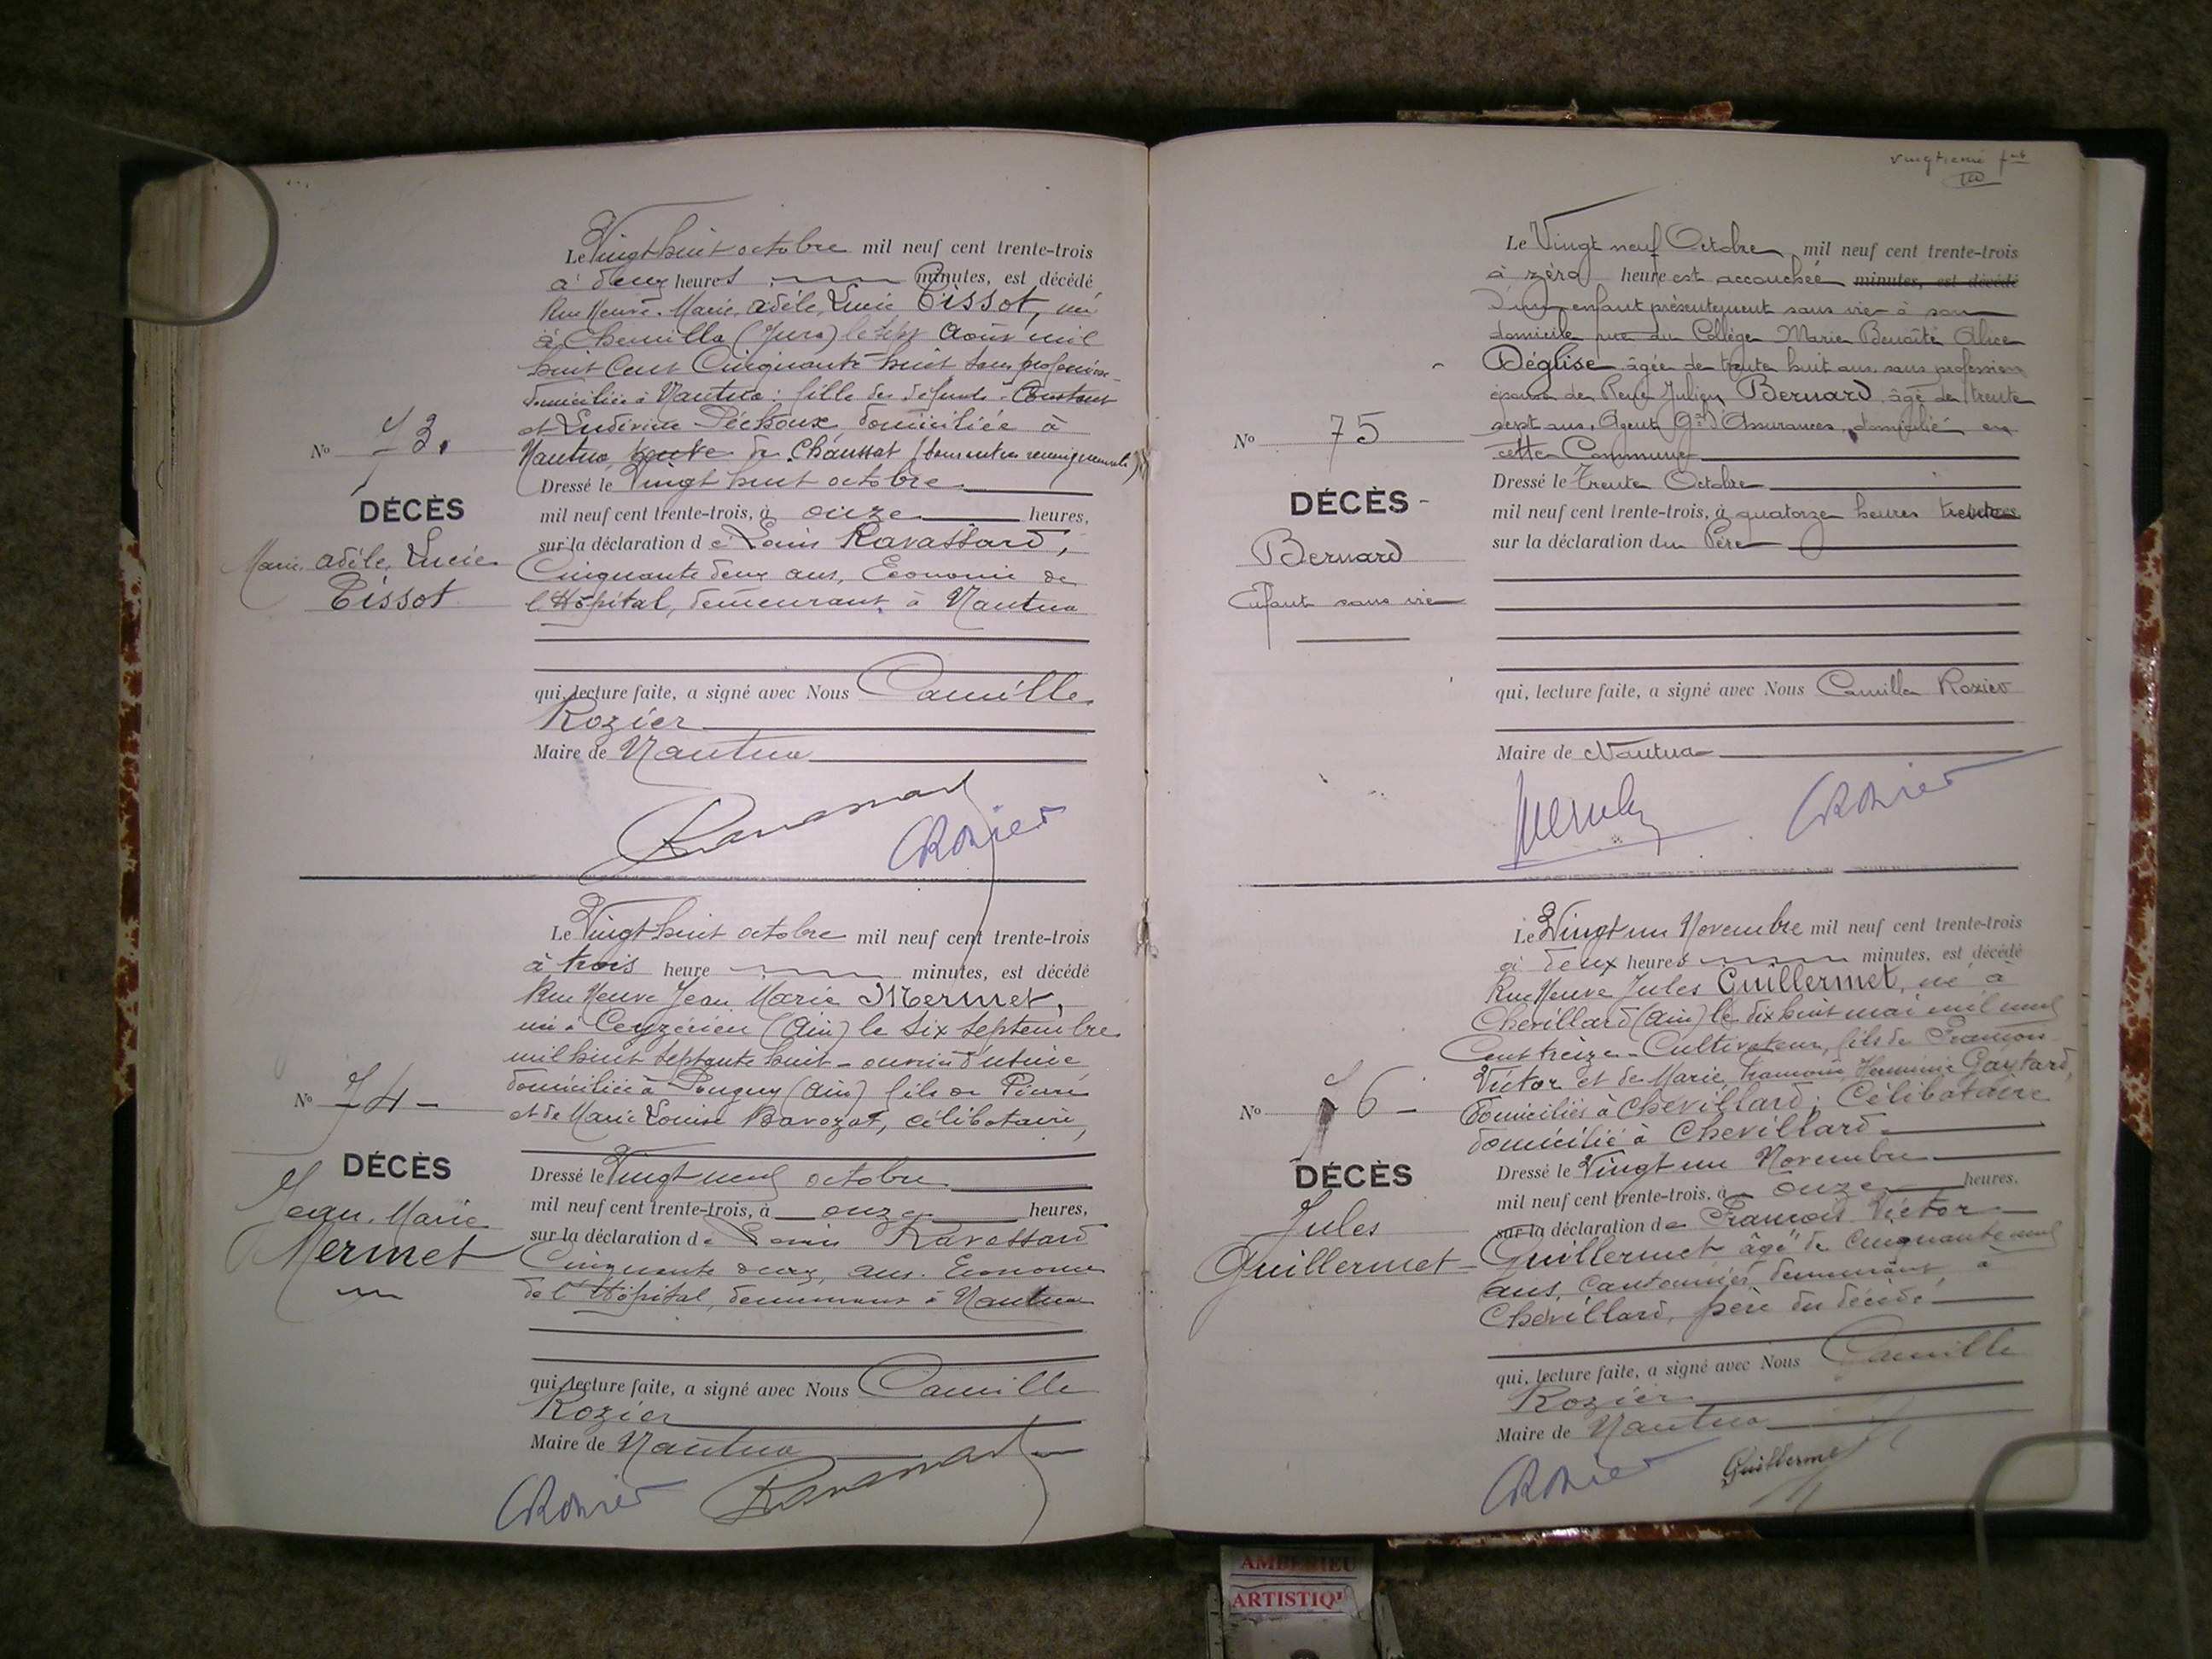 Le Vingt huit octobre mil neuf cent trente-trois
à deux heures minutes, est décédé
Rue Neuve. Marie, adèle, Lucie Tissot, né
à Chemilla (Jura) le sept Août mil
huit Cent Cinquante huit sans profession
domiciliée à Nantua: fille de défunts Constant
et Ludivine Péchoux domiciliée à
Nantua, veuve de Chaussat (sans autres renseignements)
No 73.
DÉCÈS
Marie, adèle, Lucie
Tissot
Dressé le Vingt huit octobre
mil neuf cent trente-trois, à onze heures,
sur la déclaration de Louis Ravassard,
Cinquante deux ans, Econome de
l'Hôpital, demeurant à Nantua
qui, lecture faite, a signé avec Nous Camille
Rozier
Maire de Nantua
Ravassard
CRozier
Le Vingt huit octobre mil neuf cent trente-trois
à trois heure minutes, est décédé
Rue Neuve Jean Marie Mermet,
né à Ceyzérieu (Ain) le six septembre
mil huit septante huit - ouvrier d'usine
domiciliée à Pougny (Ain) fils de Pierre
et de Marie Louise Bavozat, célibataire,
No 74 -
DÉCÈS
Jean. Marie
Mermet
Dressé le Vingt neuf octobre
mil neuf cent trente-trois, à onze heures,
sur la déclaration de Louis Ravassard
Cinquante deux, ans. Econome
de l'Hôpital, demeurant à Nantua
qui, lecture faite, a signé avec Nous Camille
Rozier
Maire de Nantua
CRozier Ravassard
vingtième
Le Vingt neuf Octobre mil neuf cent trente-trois
à zéro heure est accouchée minutes, est décédé
d'un enfant présentement sans vie à son
domicile rue du Collège Marie Benoîte Alice
Déglise âgée de trente huit ans, sans profession
épouse de René Julien Bernard, âgé de trente
sept ans, Agent Gal d'Assurances, domicilié en
cette Commune
No 75
DÉCÈS -
Bernard
Enfant sans vie
Dressé le Trente Octobre
mil neuf cent trente-trois, à quatorze heures trente
sur la déclaration du Père
qui, lecture faite, a signé avec Nous Camille Rozier
Maire de Nantua
CRozier
Le Vingt un Novembre mil neuf cent trente-trois
à deux heures minutes, est décédé
Rue Neuve Jules Guillermet, né à
Chevillard (Ain) le dix huit mai mil neuf
Cent treize - Cultivateur, fils de François
Victor et de Marie, Herminie
domiciliés à Chevillard; Célibataire
domicilié à Chevillard.
No 76 -
DÉCÈS
Jules
Guillermet -
Dressé le Vingt un Novembre
mil neuf cent trente-trois, à onze heures,
sur la déclaration de François Victor
Guillermet âgé de cinquante neuf
ans, cantonnier, demeurant à
Chevillard, père du décédé
qui, lecture faite, a signé avec Nous Camille
Rozier
Maire de Nantua
CRozier Guillermet
AMBERIEU
ARTISTIQ